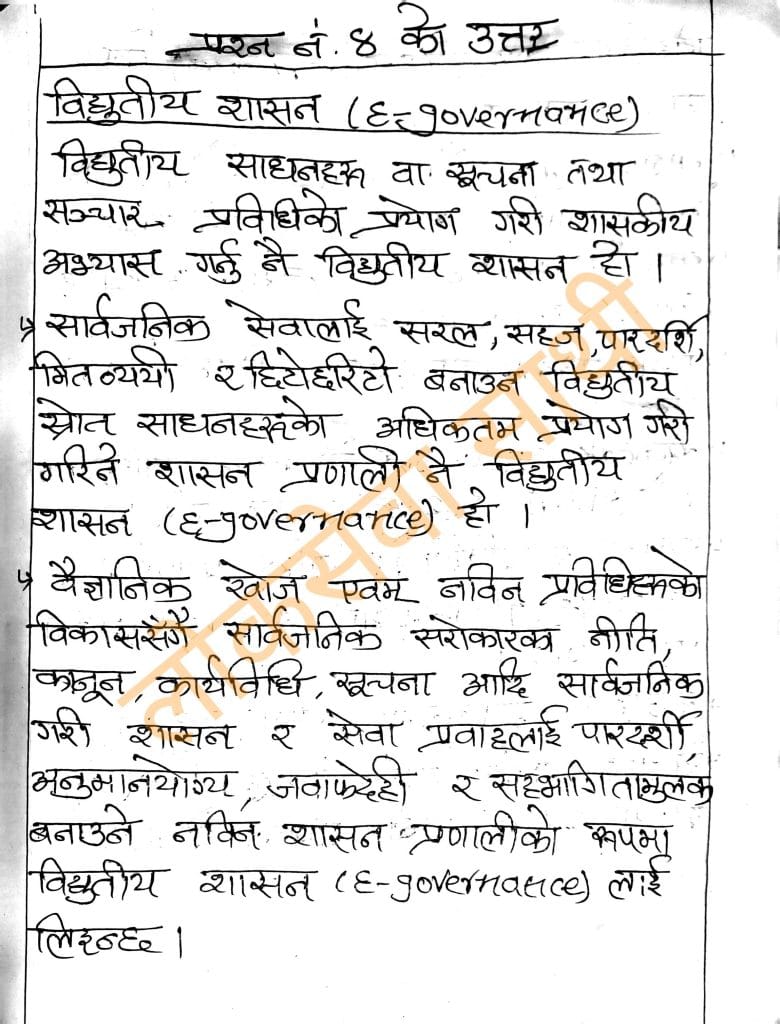 प्रश्न नं. ४ को उत्तर
विद्युतीय शासन (E-governance)
विद्युतीय साधनहरू वा सूचना तथा
सञ्चार प्रविधिको प्रयोग गरी शासकीय
अभ्यास गर्नु नै विद्युतीय शासन हो ।
↳ सार्वजनिक सेवालाई सरल, सहज, पारदर्शि,
मितव्ययी र छिटोछरिटो बनाउन विद्युतीय
स्रोत साधनहरूको अधिकतम प्रयोग गरी
गरिने शासन प्रणाली नै विद्युतीय
शासन (E-governance) हो ।
↳ वैज्ञानिक खोज एवम् नविन प्रविधिहरूको
विकाससँगै सार्वजनिक सरोकारका नीति,
कानून, कार्यविधि, सूचना आदि सार्वजनिक
गरी शासन र सेवा प्रवाहलाई पारदर्शी,
अनुमानयोग्य, जवाफदेही र सहभागितामुलक
बनाउने नविन शासन प्रणालीको रूपमा
विद्युतीय शासन (E-governance) लाई
लिइन्छ ।
लोकसेवा साथी